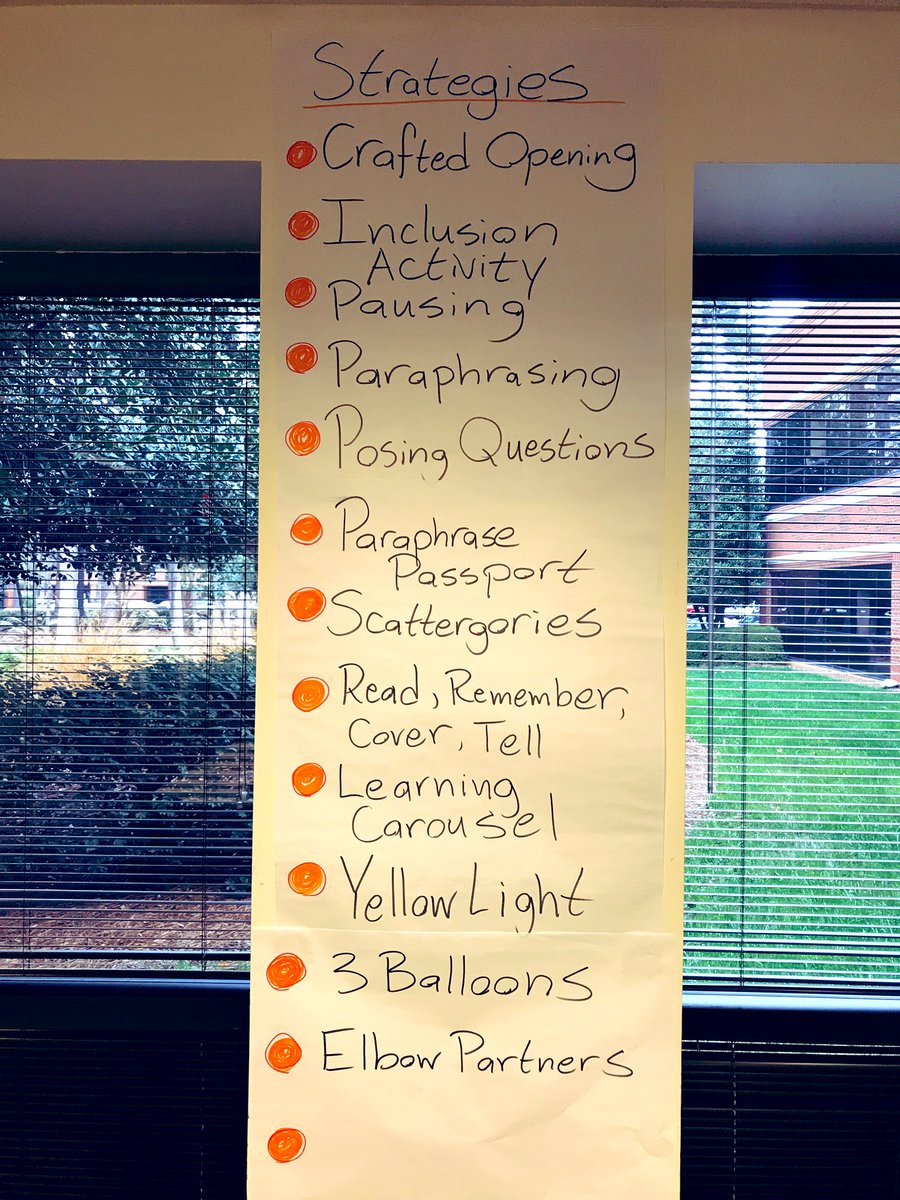 Strategies
Crafted Opening
Inclusion
Activity
Pausing
Paraphrasing
Posing Questions
Paraphrase
Passport
Scattergories
Read, Remember,
Cover, Tell
Learning
Carousel
Yellow Light
3 Balloons
Elbow Partners